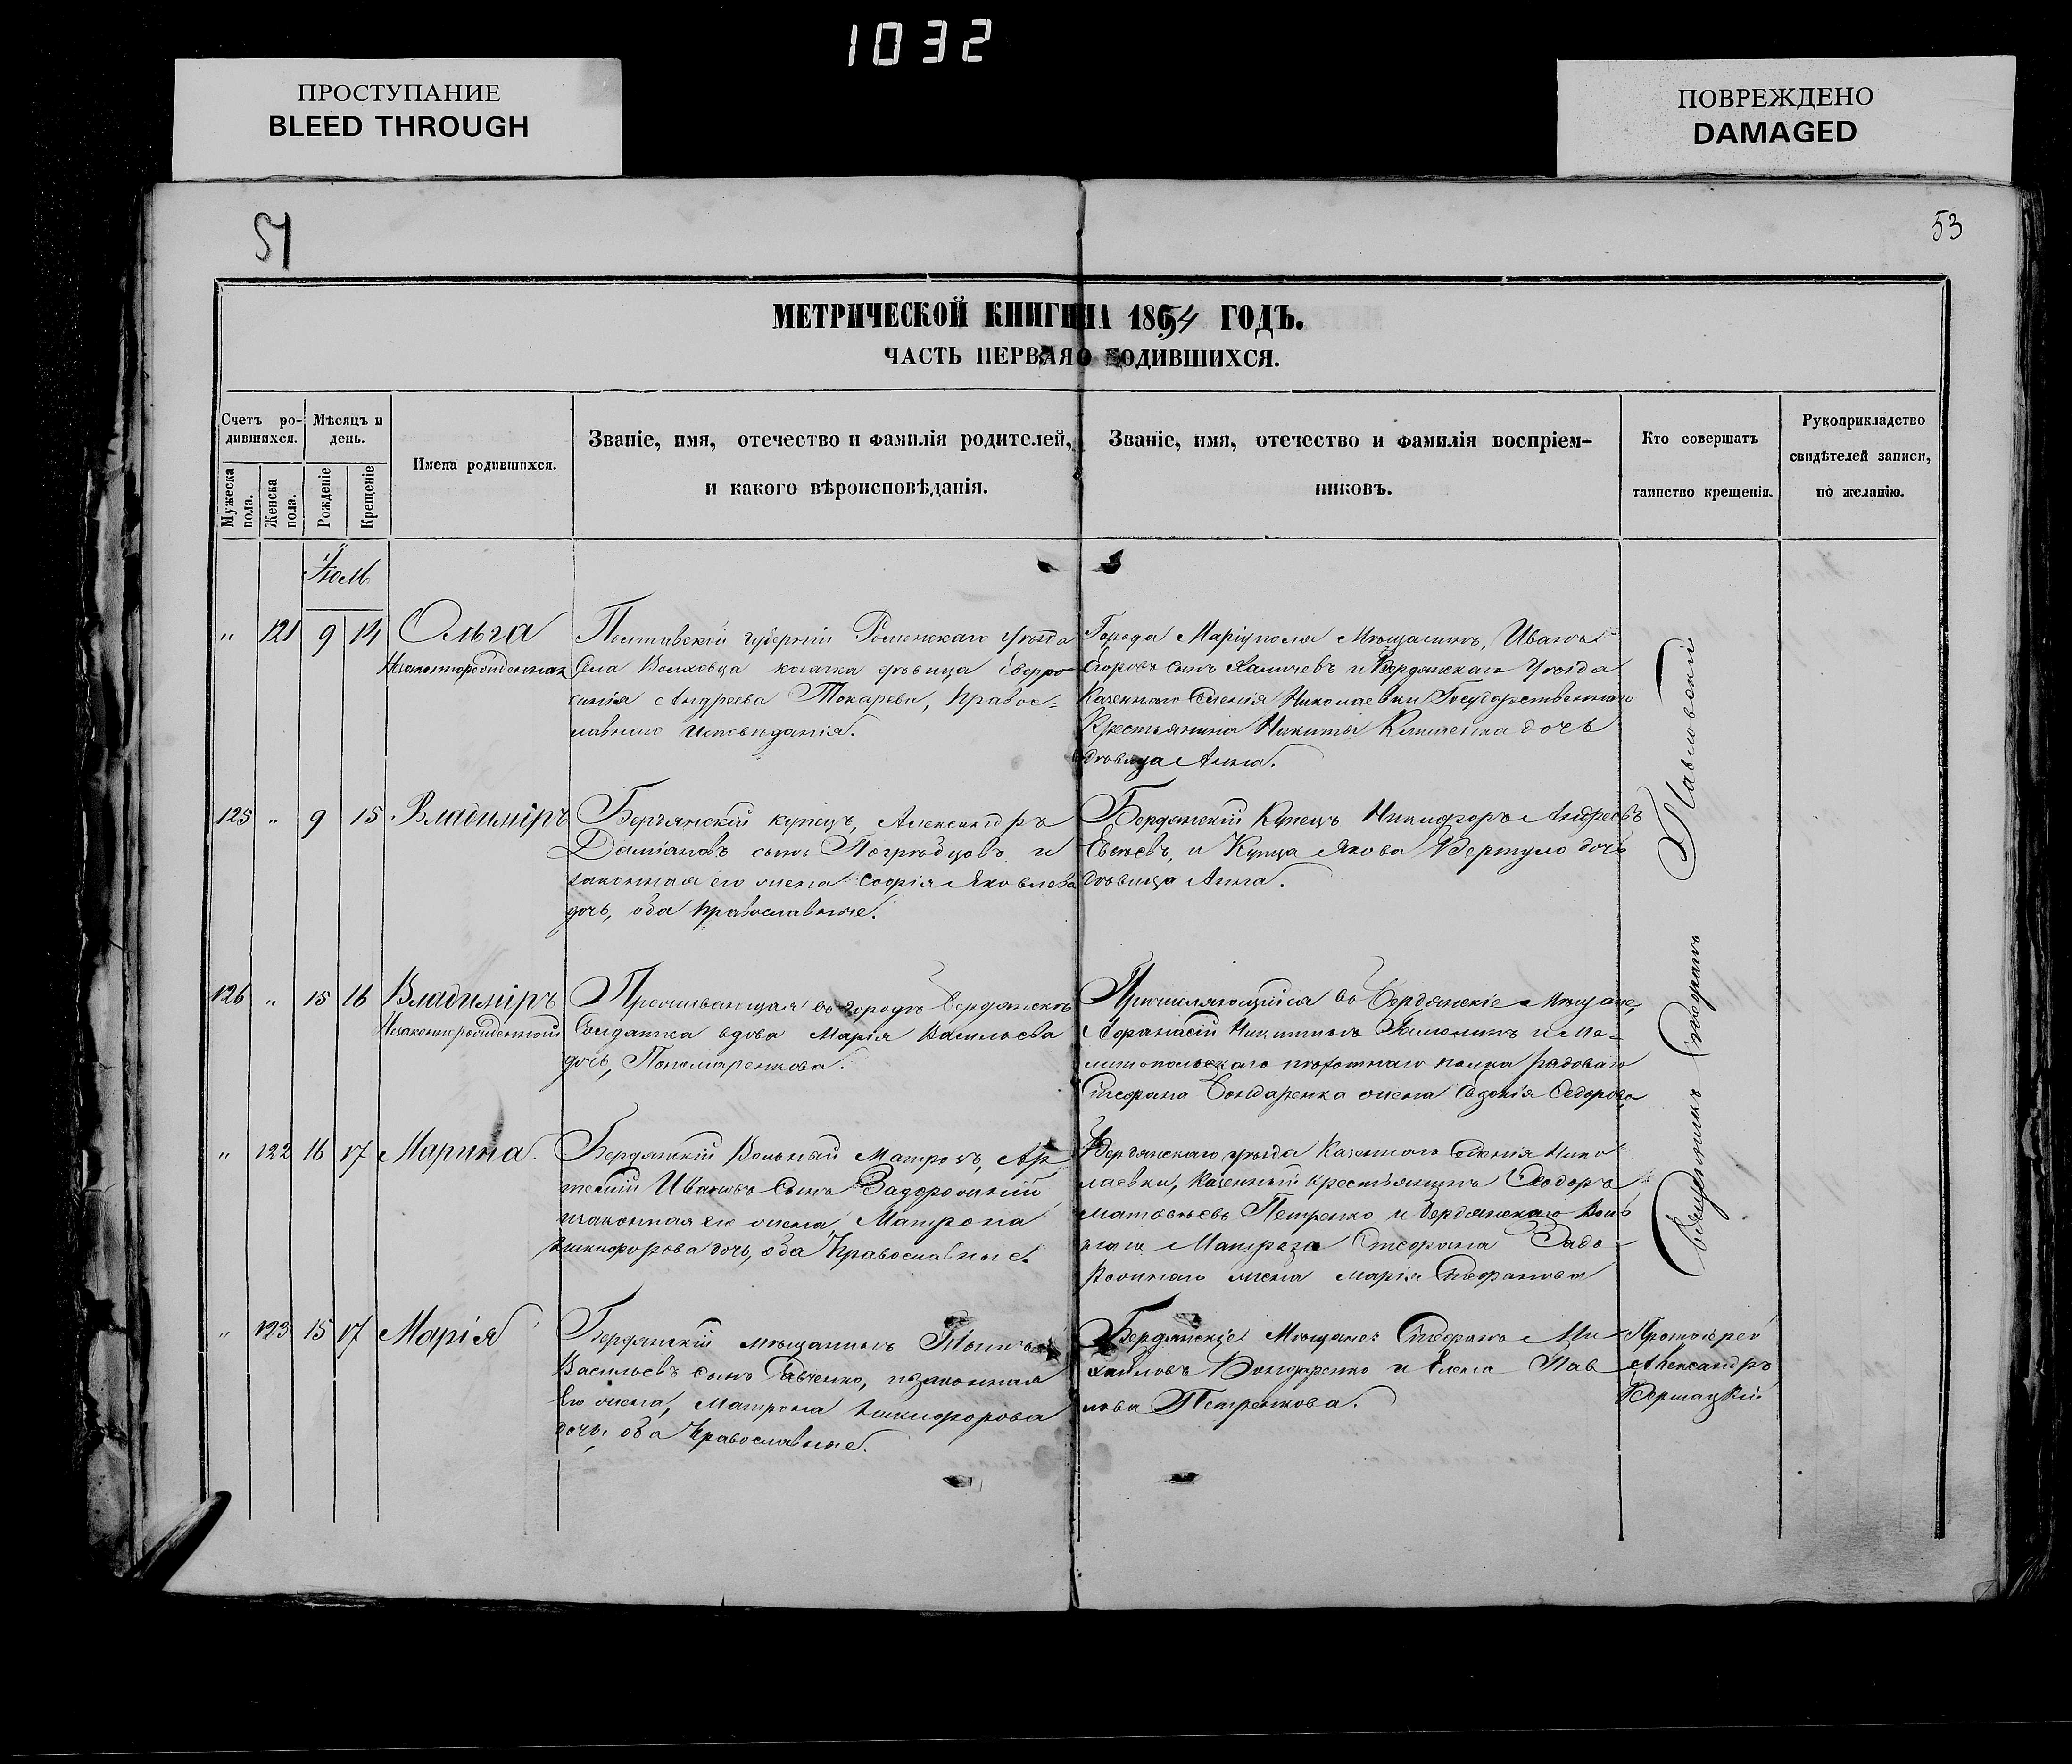 1032
ПРОСТУПАНИЕ
BLEED THROUGH
ПОВРЕЖДЕНО
DAMAGED
51
53
МЕТРИЧЕСКОЙ КНИГИ НА 1864 ГОДЪ.
ЧАСТЬ ПЕРВАЯ О РОДИВШИХСЯ.
Счетъ ро-
дившихся.
Мужеска
пола.
Женска
пола.
Мѣсяцъ и
день.
Рожденіе
Крещеніе
Имена родившихся.
Званіе, имя, отечество и фамилія родителей,
и какого вѣроисповѣданія.
Званіе, имя, отечество и фамилія воспріем-
никовъ.
Кто совершатъ
таинство крещенія.
Рукоприкладство
свидѣтелей записи,
по желанію.
" 121 9 14 Ольга
Незаконнорожденная
Полтавской губерніи Роменскаго уѣзда
Села Волховца козачка дѣвица Евфро
синія Андреева Токарева, Правос=
лавнаго Исповѣданія.
Города Маріуполя Мѣщанинъ, Иванъ
Егоровъ сынъ Халичевъ и Бердянскаго Уѣзда
Казеннаго Селенія Николаевки Государственнаго
Крестьянина Никиты дочь
дѣвица Анна.
125 " 9 15 Владиміръ
Бердянскій купецъ, Александръ
Даміановъ сынъ Погребцовъ и
законная его жена Софія Яковлева
дочь, оба православные.
Бердянскій Купецъ Никифоръ Андреевъ
и Купца Якова Вертуло дочь
дѣвица Анна.
126 " 15 16 Владиміръ
Незаконнорожденный
Проживающая въ городѣ Бердянскѣ
Солдатка вдова Марія Васильева
дочь, Пономаренкова.
Причисляющійся въ Бердянскіе Мѣщане,
Афанасій Никитинъ и Ме-
литопольскаго пѣхотнаго полка рядоваго
Стефана Бондаренка жена Евдокія Федорова
" 122 16 17 Марина.
Бердянскій Вольный Матрозъ, Ар
темій Ивановъ Сынъ Задорожный
и законная его жена, Матрона
Никифорова дочь, оба Православные.
Бердянскаго уѣзда Казеннаго Селенія Нико
лаевки, Казенный крестьянинъ Ѳеодоръ
Матвѣевъ Петренко и Бердянскаго Воль
наго Матроза Стефана Задо-
рожнаго жена Марія Стефанова
" 123 15 17 Марія
Бердянскій мѣщанинъ
Васильевъ сынъ Савченко, и законная
Его жена, Матрона Никифорова
дочь, оба Православные.
Бердянскіе Мѣщане: Стефанъ Ми
хайловъ Бондаренко и Елена Пав
лова Петренкова.
Священникъ Стефанъ Павловскій
Протоіерей
Александръ